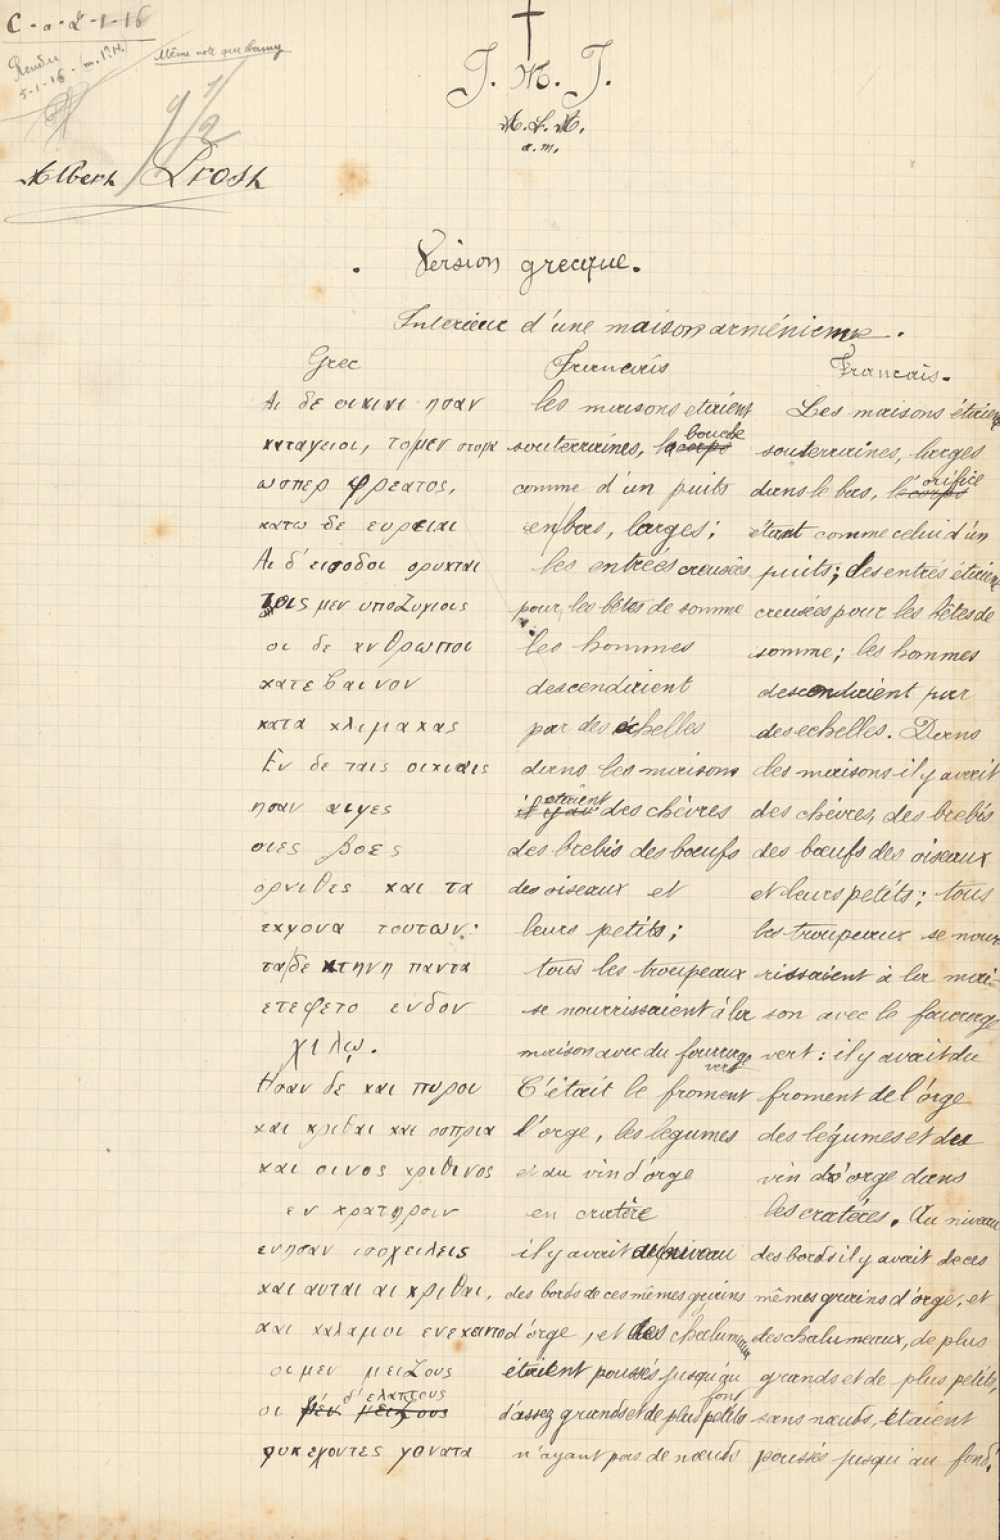 C-o-2-1-16
Rendu
5-1-16 - (m.P.H.)
Même note que
9 1/2
J. M. J.
M.L.M.
a.m.
Albert Prosh
Version grecque.
Intérieur d'une maison arménienne.
Grec Francais Francais.
Αι δε οικιαι ησαν les maisons etaient Les maisons étaient
καταγειοι, το μεν στομα souterraines, la corps bouche souterraines, larges
ωσπερ φρεατος, comme d'un puits dans le bas, le corps orifice
κατω δε ευρειαι en bas, larges; étant comme celui d'un
Αι δ'εισοδοι ορυκται les entrées creusées puits; des entrés étaient
τοις μεν υποζυγιοις pour les bêtes de somme creusées pour les bêtes de
οι δε ανθρωποι les hommes somme; les hommes
κατεβαινον descendaient descendaient par
κατα κλιμακας par des échelles des echelles. Dans
Εν δε ταις οικιαις dans les maisons les maisons il y avait
ησαν αιγες il y av etaient des chèvres des chèvres, des brebis
οιες βοες des brebis des bœufs des bœufs des oiseaux
ορνιθες και τα des oiseaux et et leurs petits; tous
εκγονα τουτων: leurs petits; les troupeaux se nour
τα δε κτηνη παντα tous les troupeaux rissaient à la mai-
ετεφετο ενδον se nourrissaient à la son avec le fourrage
χιλῳ. maison avec du fourrage vert vert: il y avait du
Ησαν δε και πυροι C'était le froment froment de l'orge
και κριθαι και οσπρια l'orge, les légumes des légumes et du
και οινος κριθινος et du vin d'orge vin d'orge dans
εν κρατηροιν en cratère les cratères. Au niveau
ενησαν ισοχειλεις il y avait au niveau des bords il y avait de ces
και αυται αι κριθαι, des bords de ces mêmes grains mêmes grains d'orge, et
και καλαμοι ενεκειντο d'orge, et des chalumeaux des chalumeaux, de plus
οι μεν μειζους étaient poussés jusqu'au fond grands et de plus petits,
οι μέν μειζους δ'ελαττους d'assez grands et de plus petits sans nœuds, étaient
ουκ εχοντες γονατα n'ayant pas de nœuds poussés jusqu'au fond.